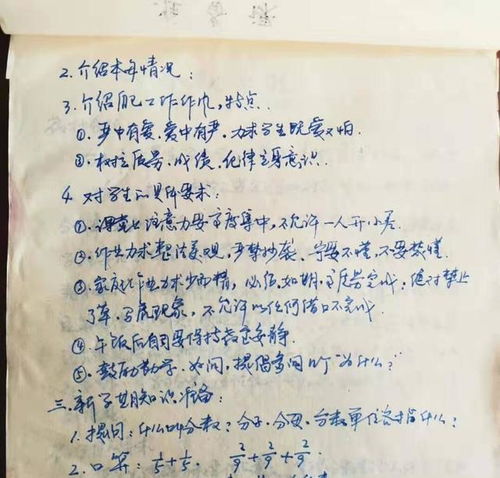 2. 介绍本每情况:
3. 介绍自己工作作风,特点.
①. 严中有爱,爱中有严. 力求学生既爱又怕.
②. 树立质量、成绩、纪律意识.
4. 对学生的具体要求:
①. 课堂上注意力要高度集中,不允许一人开小差.
②. 作业力求整洁美观,严禁抄袭、宁要不懂,不要装懂.
③. 家庭作业力求少而精,必须如期、高质量完成,绝对禁止
了草、写虎现象,不允许以任何借口不完成.
④. 午饭后自习要保持教室安静.
⑤. 鼓励勤学、好问,提倡多问几个"为什么?"
三. 新学期知识准备:
1. 提问:什么叫分数?分子、分母、分数单位各指什么?
2. 口算: 1/5+1/5. 2/9+2/9+2/9.